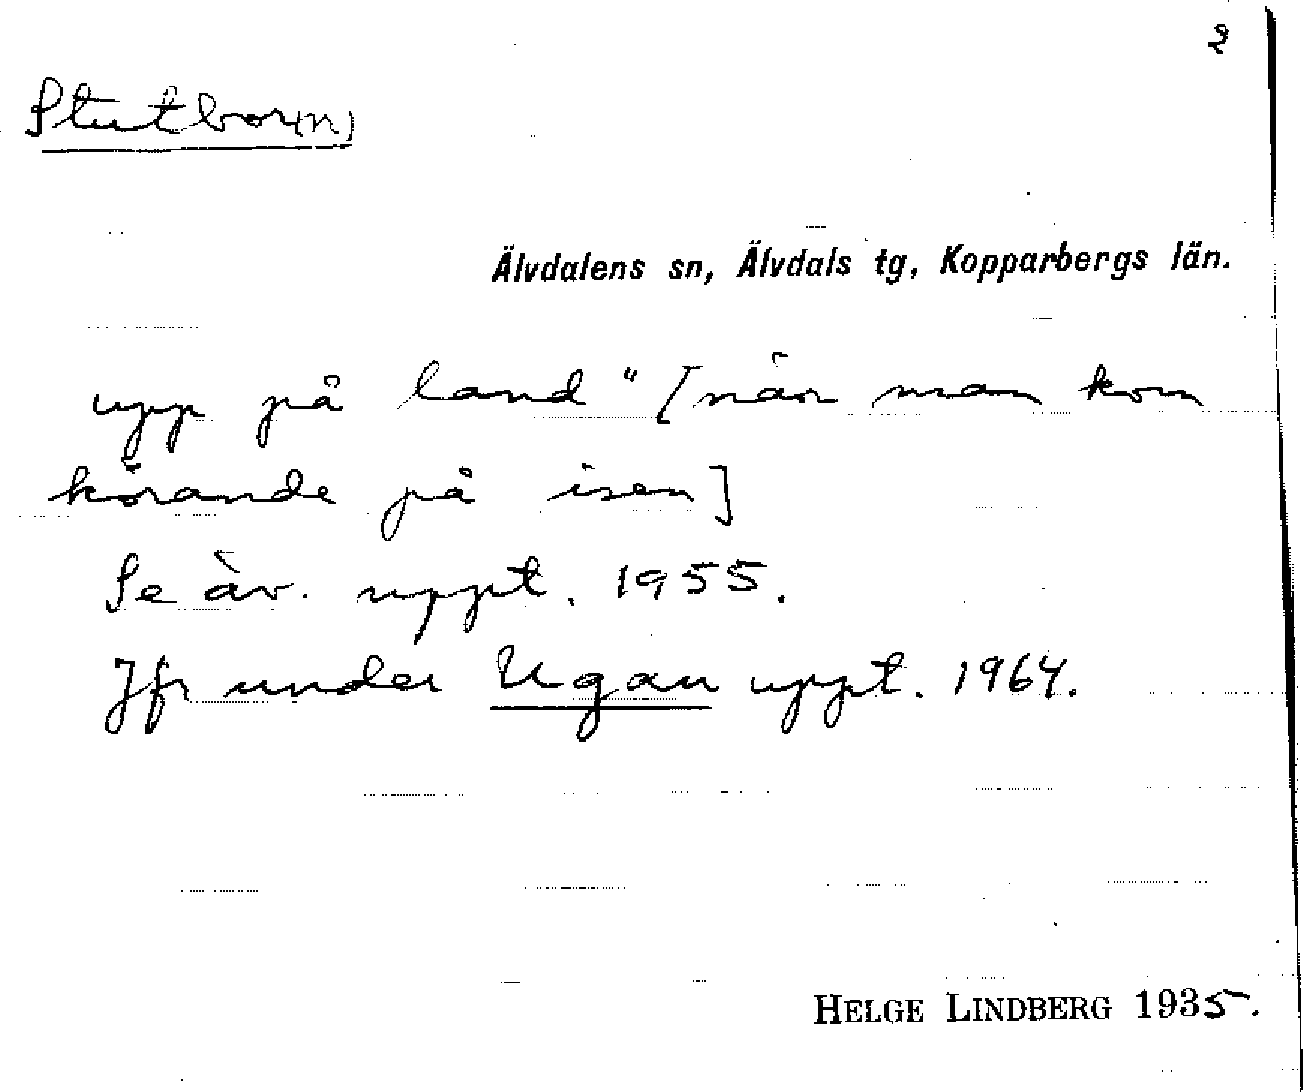 2
Stutbor(n)
Älvdalens sn, Älvdals tg, Kopparbergs län.
upp på land" [när man kom
körande på isen]
Se äv. uppt. 1955.
Jfr under Ugan uppt. 1964.
HELGE LINDBERG 1935.